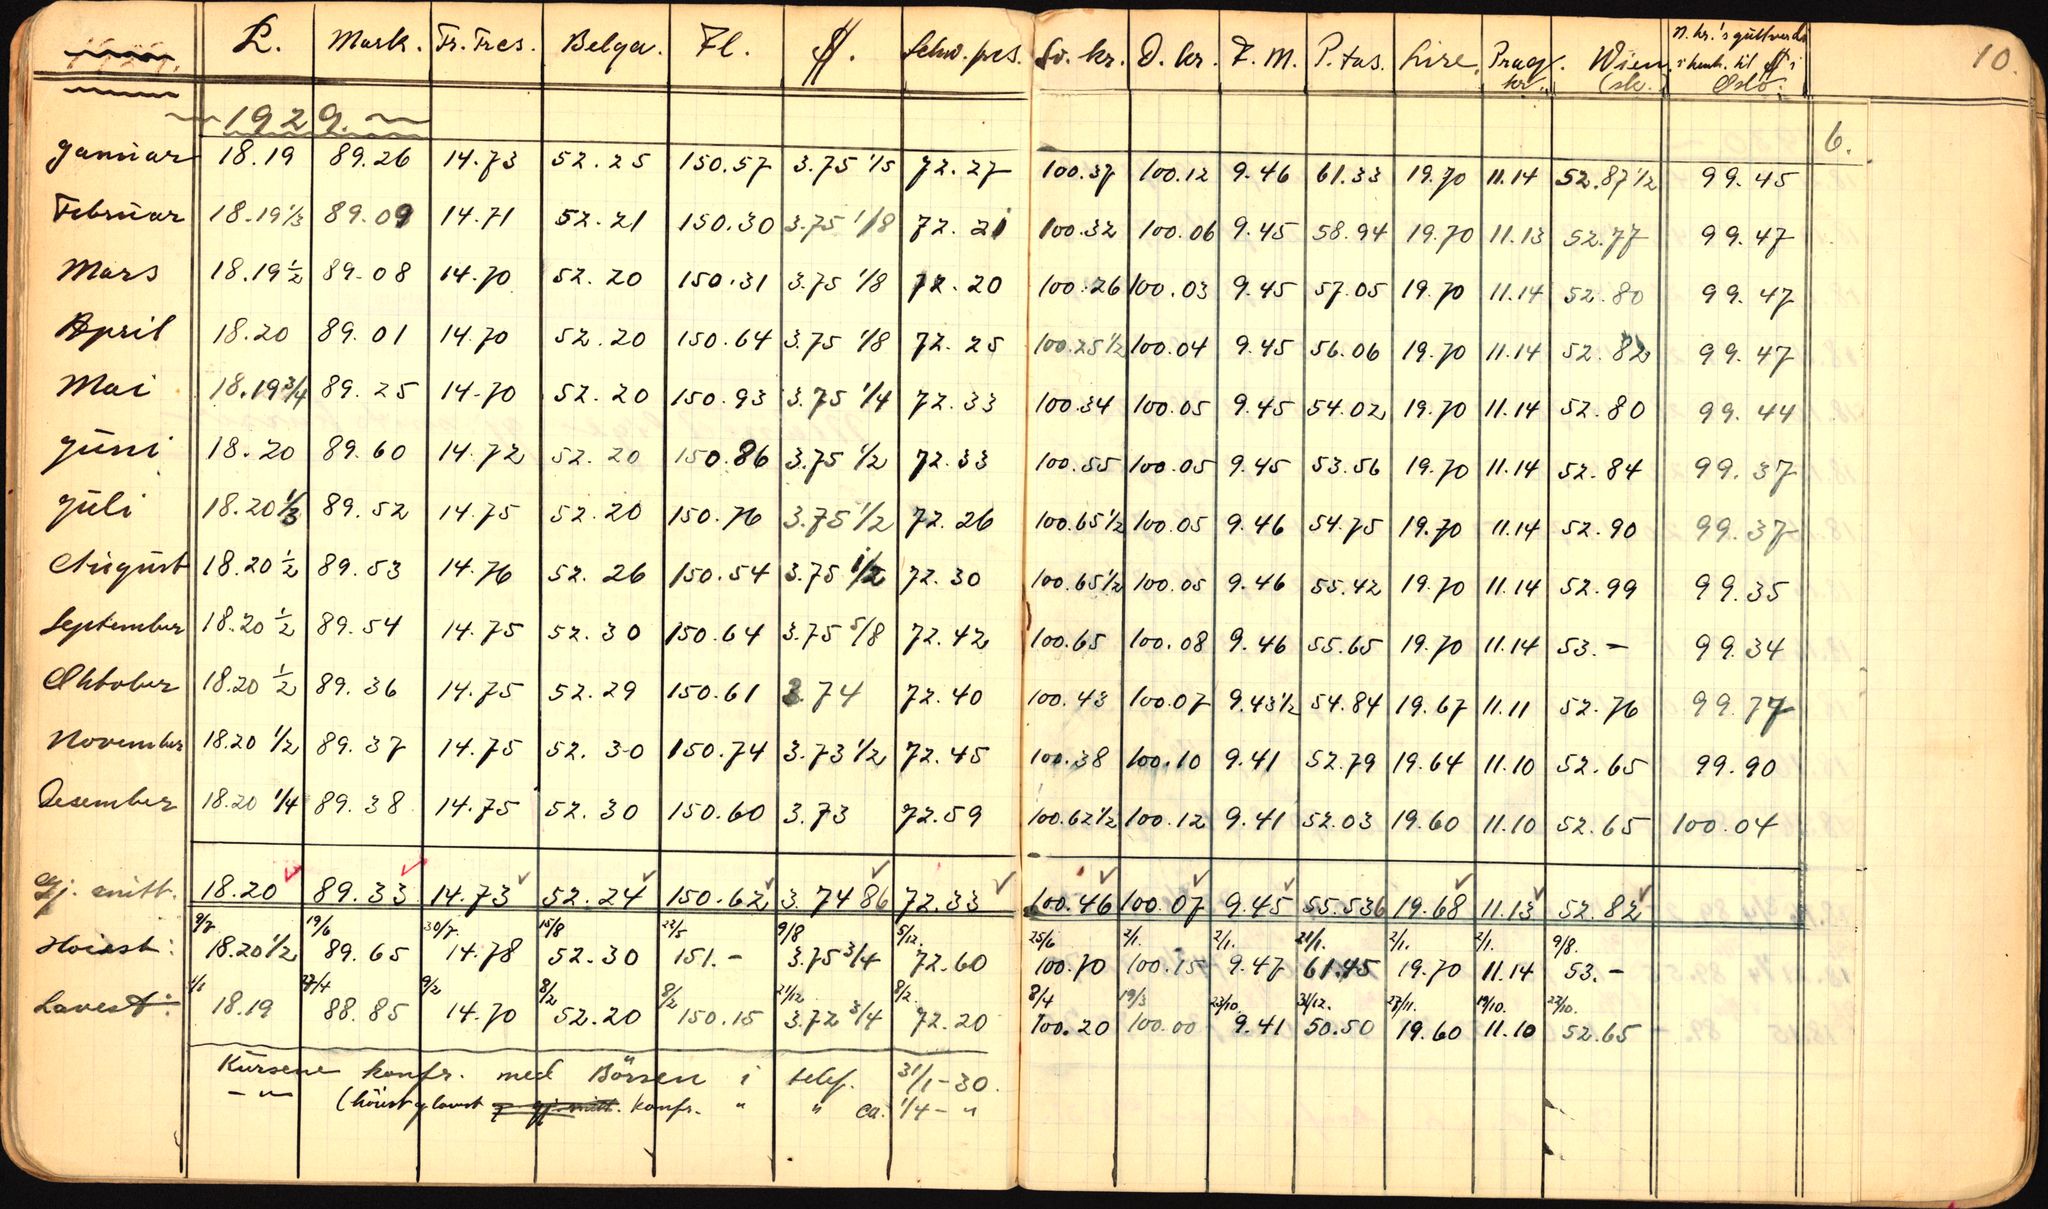 £. Mark. Fr. Frcs. Belga. Fl. $. Schw. frcs. Sv. kr. D. kr. F. M. P.tas. Lire. Prag kr. Wien (sk. N. kr.'s gullverdi i henh. til $ i Oslo. 10.
1929. 6.
Januar 18.19 89.26 14.73 52.25 150.57 3.75 1/5 72.27 100.37 100.12 9.46 61.33 19.70 11.14 52.87 1/2 99.45
Februar 18.19 1/3 89.09 14.71 52.21 150.30 3.75 1/8 72.21 100.32 100.06 9.45 58.94 19.70 11.13 52.77 99.47
Mars 18.19 1/2 89.08 14.70 52.20 150.31 3.75 1/8 72.20 100.26 100.03 9.45 57.05 19.70 11.14 52.80 99.47
April 18.20 89.01 14.70 52.20 150.64 3.75 1/8 72.25 100.25 1/2 100.04 9.45 56.06 19.70 11.14 52.82 99.47
Mai 18.19 3/4 89.25 14.70 52.20 150.93 3.75 1/4 72.33 100.34 100.05 9.45 54.02 19.70 11.14 52.80 99.44
Juni 18.20 89.60 14.72 52.20 150.86 3.75 1/2 72.33 100.55 100.05 9.45 53.56 19.70 11.14 52.84 99.37
Juli 18.20 1/3 89.52 14.75 52.20 150.76 3.75 1/2 72.26 100.65 1/2 100.05 9.46 54.75 19.70 11.14 52.90 99.37
August 18.20 1/2 89.53 14.76 52.26 150.54 3.75 1/2 72.30 100.65 1/2 100.05 9.46 55.42 19.70 11.14 52.99 99.35
September 18.20 1/2 89.54 14.75 52.30 150.64 3.75 5/8 72.42 100.65 100.08 9.46 55.65 19.70 11.14 53.- 99.34
Oktober 18.20 1/2 89.36 14.75 52.29 150.61 3.74 72.40 100.43 100.07 9.43 1/2 54.84 19.67 11.11 52.76 99.77
November 18.20 1/2 89.37 14.75 52.30 150.74 3.73 1/2 72.45 100.38 100.10 9.41 52.79 19.64 11.10 52.65 99.90
Desember 18.20 1/4 89.38 14.75 52.30 150.60 3.73 72.59 100.62 1/2 100.12 9.41 52.03 19.60 11.10 52.65 100.04
Gj. snitt. 18.20 89.33 14.73 52.24 150.62 3.7486 72.33 100.46 100.07 9.45 55.536 19.68 11.13 52.82
9/7 19/6 30/7. 15/8 22/5 9/8 5/12. 25/6 2/1. 2/1. 21/1. 2/1. 2/1. 9/8.
Höiest: 18.20 1/2 89.65 14.78 52.30 151.- 3.75 3/4 72.60 100.70 100.15 9.47 61.45 19.70 11.14 53.-
1/1 27/4 9/2 8/2 8/2 21/12. 8/2. 8/4 19/3 23/10. 31/12. 27/11. 19/10. 27/10.
Lavest: 18.19 88.85 14.70 52.20 150.15 3.72 3/4 72.20 100.20 100.00 9.41 50.50 19.60 11.10 52.65
Kursene konfr. med Börsen i telef. 31/1-30.
-"- (höiest og lavest og gj.snitt. konfr. " " ca. 1/4 - "